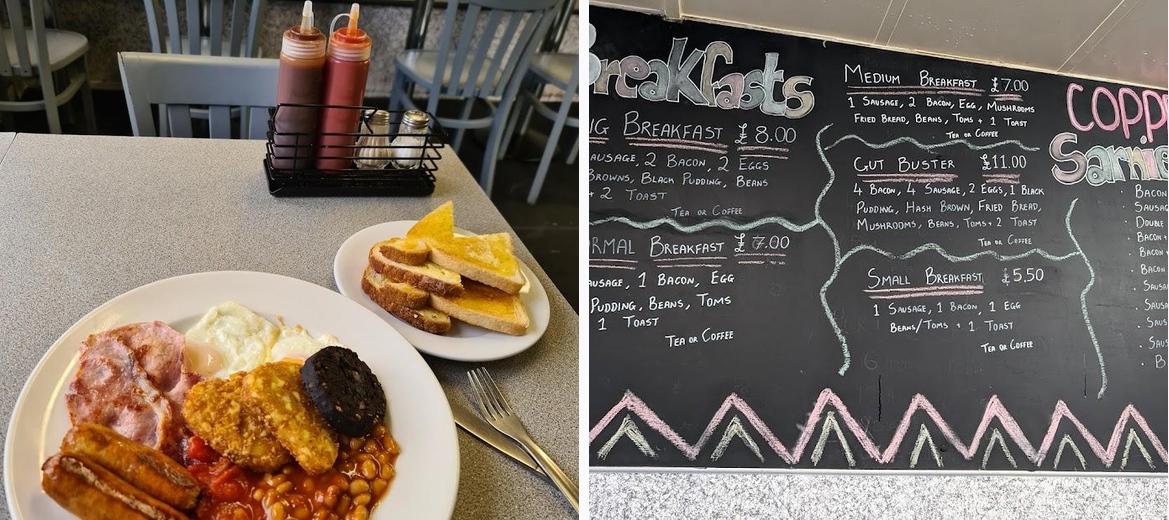 Breakfasts
BREAKFAST £8.00
SAUSAGE, 2 BACON, 2 EGGS
BROWNS, BLACK PUDDING, BEANS
+ 2 TOAST
TEA OR COFFEE
BREAKFAST £7.00
SAUSAGE, 1 BACON, EGG
PUDDING, BEANS, TOMS
1 TOAST
TEA OR COFFEE
MEDIUM BREAKFAST £7.00
1 SAUSAGE, 2 BACON, EGG, MUSHROOMS
FRIED BREAD, BEANS, TOMS + 1 TOAST
TEA OR COFFEE
GUT BUSTER £11.00
4 BACON, 4 SAUSAGE, 2 EGGS, 1 BLACK
PUDDING, HASH BROWN, FRIED BREAD,
MUSHROOMS, BEANS, TOMS + 2 TOAST
TEA OR COFFEE
SMALL BREAKFAST £5.50
1 SAUSAGE, 1 BACON, 1 EGG
BEANS/TOMS + 1 TOAST
TEA OR COFFEE
COPP
Sarnie
BACON
SAUSAG
DOUBLE
BACON +
BACON +
BACON
SAUSA
SAUS
SAUS
SAUS
B